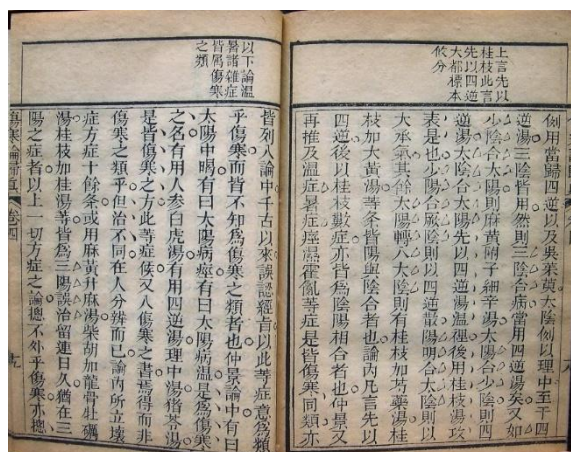 上言先以
桂枝此言
先以四逆
大都標本
攸分
例用當歸四逆以及吳茱萸太陰例以理中至于四
逆湯三陰皆用然則三陰合病當用四逆湯矣又如
少陰合太陽則麻黃附子細辛湯太陽合少陰則四
逆湯太陽合太陰先以四逆湯溫裡後用桂枝湯攻
表是也少陽合厥陰則以四逆散陽明合太陰則以
大承氣其餘太陽轉入太陰則有桂枝加芍藥湯桂
枝加大黃湯等条皆陽與陰合者也論內凡言先以
四逆後以桂枝數症亦皆爲陰陽相合者也仲景又
再推及溫症暑症痙濕霍亂等症是皆傷寒同類亦
以下論溫
暑諸雜症
皆屬傷寒
之類
皆列入論中千古以來誤認經旨以此等症意爲類
乎傷寒而皆不知爲傷寒之類者也仲景論中有曰
太陽中暍有曰太陽病痙有曰太陽病溫是爲傷寒
之名有用人參白虎湯有用四逆湯理中湯
是皆傷寒之方此等症俟又入傷寒之書焉得而非
傷寒之類乎但治不同在人分辨而已論內所立壞
症方症十餘条或用麻黃升麻湯柴胡加龍骨牡礪
湯桂枝加桂湯等皆爲三陽誤治留連日久猶在三
陽之症者以上一切方症之論摠不外乎傷寒亦摠
傷寒論歸真
卷四